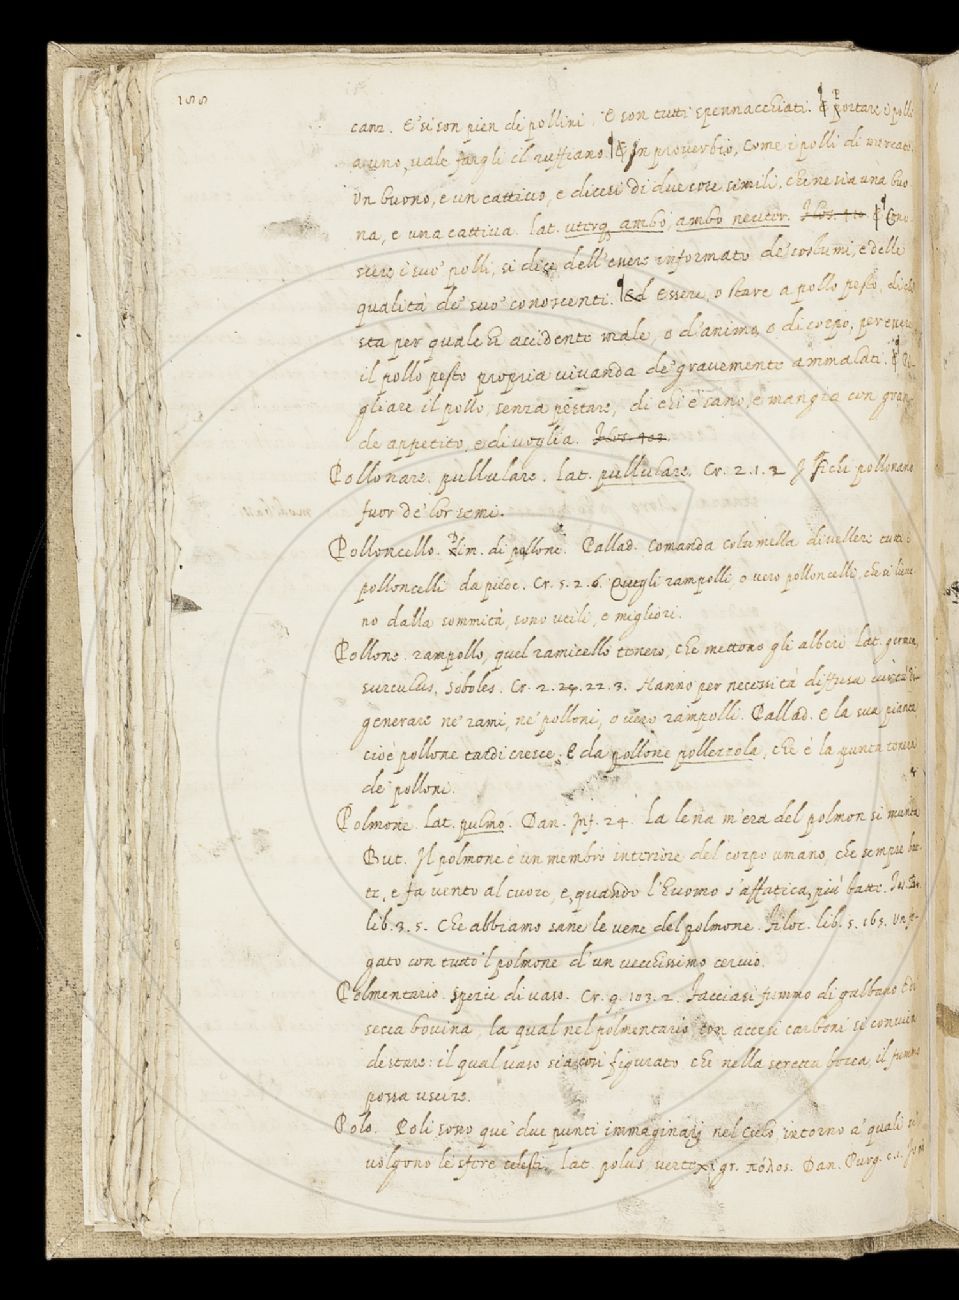 188
canz. E' si son pien di pollini, E son tutti spennacchiati. E Portare i polli
a uno, vale fargli il ruffiano. E In proverbio, Come i polli di mercato,
Un buono, e un cattivo, e dicesi di due cose simili, che ne sia una buo
na, e una cattiva. lat. uterq. ambo, ambo neuter. E Cono
scere i suo' polli, si dice dell'essere informato de' costumi, e delle
qualità de' suo' conoscenti. Ed Essere, o stare a pollo pesto, di
sta per quale si accidente male, o d'animo, o di corpo, per essere
il pollo pesto propria vivanda de' gravemente ammalati. E Pi-
gliare il pollo, senza pestare, di chi è sano, e mangia con gran
de appetito, e di voglia.
Pollonare. pullulare. lat. pullulare. Cr. 2. 1. 2 I fichi pollonano
fuor de' lor semi.
Polloncello. Dim. di pollone. Pallad. Comanda Columella divellere tutti i
polloncelli da piede. Cr. 5. 2. 6. Quegli rampolli, o vero polloncelli, che si lieve
no dalla sommità, sono utili, e migliori.
Pollone. rampollo, quel ramicello tenero, che mettono gli alberi. lat. germen,
surculus, soboles. Cr. 2. 24. 22. 3. Hanno per necessità diffusa virtù di
generare ne' rami, ne' polloni, o vero rampolli. Pallad. E la sua pianta
cioè pollone tardi cresce. E da pollone pollezzola, che è la punta tenera
de' polloni.
Polmone. lat. pulmo. Dan. Inf. 24. La lena m'era del polmon sì munta
But. Il polmone è un membro interiore del corpo umano, che sempre bat-
te, e fa vento al cuore, e, quando l'huomo s'affatica, più batte.
lib. 3. 5. Che abbiamo sane le vene del polmone. Filoc. lib. 5. 165. Un fe-
gato con tutto 'l polmone d'un vecchissimo cervio.
Polmentario. Spezie di vaso. Cr. 9. 103. 2. Facciasi fummo di galbano e di
secca bovina, la qual nel polmentario con accesi carboni si convien
destare: il qual vaso sia così figurato che nella stretta bocca, il fummo
possa uscire.
Polo. Poli sono que' due punti immaginarij nel Cielo intorno a' quali si
volgono le sfere celesti. lat. polus, vertex, gr. πόλος. Dan. Purg. c. 1.